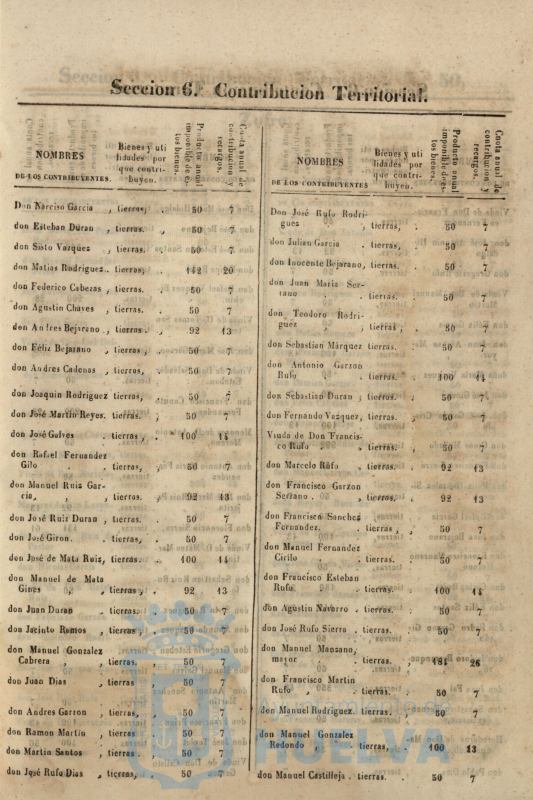 Seccion 6.ª Contribucion Territorial.
NOMBRES
DE LOS CONTRIBUYENTES.
Bienes y uti
lidades por
que contri-
buyen.
Producto anual
imponible de es-
tos bienes.
Cuota anual de
contribucion y
recargos.
Don Narciso Garcia , tierras, . 50 7
don Esteban Duran , tierras. , 50 7
don Sisto Vazquez , tierras. . 50 7
don Matias Rodriguez. . tierras, , 142 20
don Federico Cabezas , tierras. . 50 7
don Agustin Chaves , tierras. . 50 7
don Andres Bejarano , tierras . . 92 13
don Féliz Bejarano , tierras , . 50 7
don Andres Cadenas , tierras, . 50 7
don Joaquin Rodriguez tierras, . 50 7
don José Martin Reyes. tierras. , 50 7
don José Galves . tierras , . 100 14
don Rafael Fernandez
Gilo . . tierras, , 50 7
don Manuel Ruiz Gar-
cia, , , tierras. , 92 13
don José Ruiz Duran , tierras. . 50 7
don José Giron. . tierras, . 50 7
don José de Mata Ruiz, tierras. . 100 14
don Manuel de Mata
Gines , , tierras , . 92 13
don Juan Duran . tierras. . 50 7
don Jacinto Ramos , tierras , . 50 7
don Manuel Gonzalez
Cabrera , , tierras. , 50 7
don Juan Dias , tierras , 50 7
don Andres Garron , tierras, , 50 7
don Ramon Martin , tierras , . 50 7
don Martin Santos , tierras. . 50 7
don José Rufo Dias , tierras, . 50 7
NOMBRES
DE LOS CONTRIBUYENTES
Bienes y uti
lidades por
que contri-
buyen.
Producto anual
imponible de es-
tos bienes.
Cuota anual de
contribucion y
recargos.
Don José Rufo Rodri-
guez , tierras, . 50 7
don Julian Garcia . tierras, . 50 7
don Inocente Bejarano, tierras. . 50 7
don Juan Maria Ser-
rano . . tierras. . 50 7
don Teodoro Rodri-
guez , tierras , , 50 7
don Sebastian Márquez tierras. . 50 7
don Antonio Garzon
Rufo . . tierras. . 100 14
don Sebastian Duran , tierras. , 50 7
don Fernando Vazquez, tierras. , 50 7
Viuda de Don Francis-
co Rufo , , tierras. , 50 7
don Marcelo Rufo , tierras. . 92 13
don Francisco Garzon
Serrano . , tierras. , 92 13
don Francisco Sanchez
Fernandez. . tierras , , 50 7
don Manuel Fernandez
Cirilo , . tierras. . 50 7
don Francisco Esteban
Rufo . tierras. . 100 14
don Agustin Navarro . tierras. . 50 7
don José Rufo Sierra . tierras. . 50 7
don Manuel Manzano,
mayor , . tierras. . 184 26
don Francisco Martin
Rufo , , tierras. . 50 7
don Manuel Rodriguez. tierras. . 50 7
don Manuel Gonzalez
Redondo , , tierras, . 100 13
don Manuel Castilleja . tierras. . 50 7
HUELVA